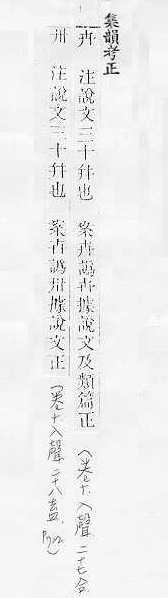 集韻考正
卉　注說文三十幷也　案卉譌卋據說文及類篇正（卷十入聲二十七合）
卅　注說文三十幷也　案卋譌卅據說文正（卷十入聲二十八盍P72）